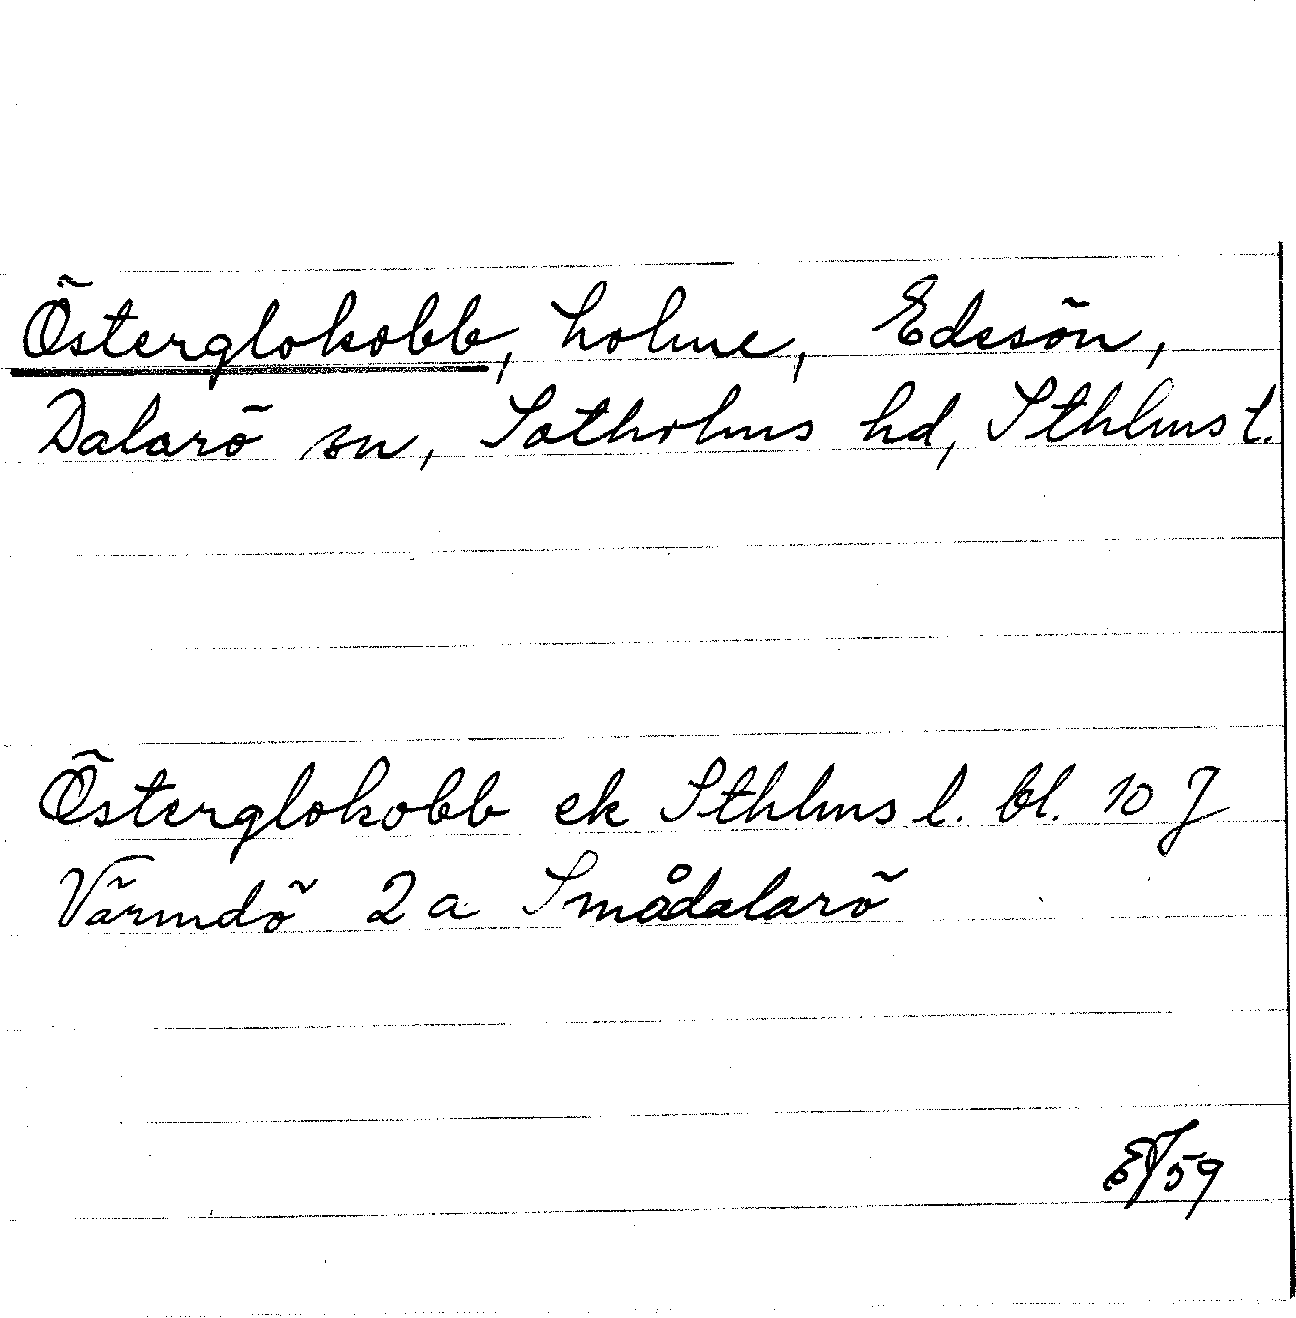 Österglokobb, holme, Edesön,
Dalarö sn, Sotholms hd, Sthlms l.
Österglokobb ek Sthlms l. bl. 10 J
Värmdö 2 a Smådalarö
EJ 59